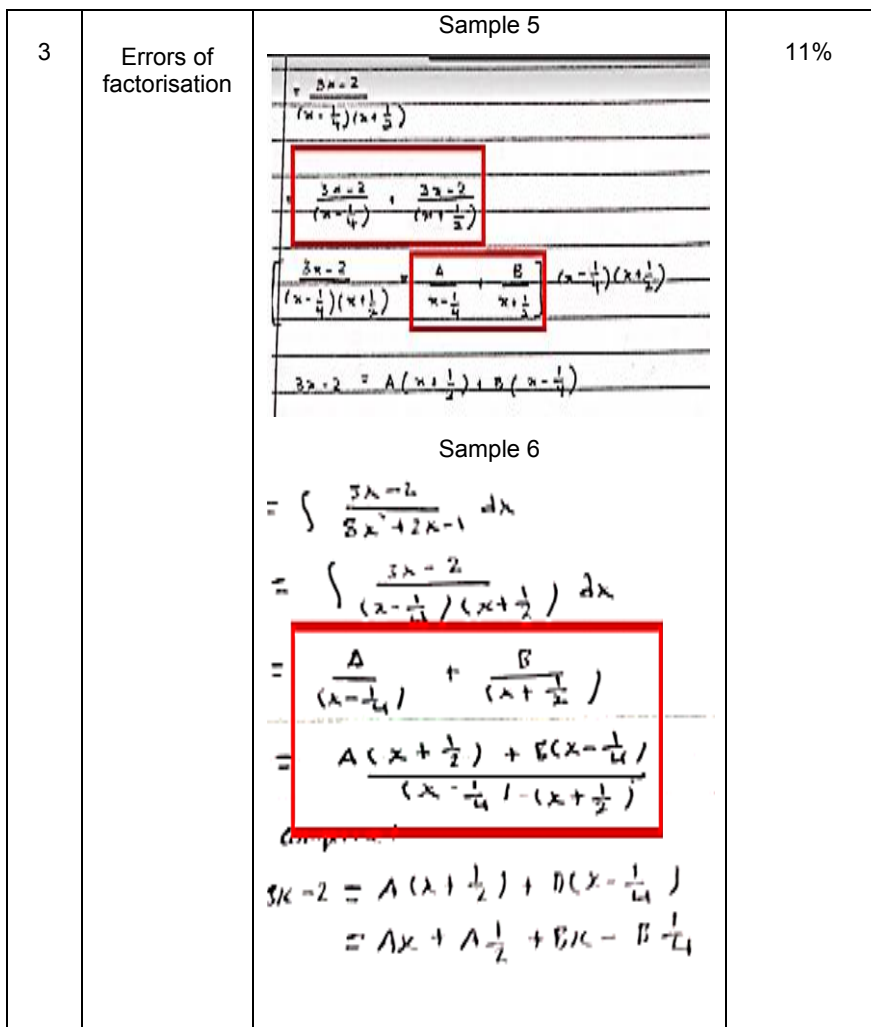 3
Errors of
factorisation
Sample 5
11%
= 3x - 2
(x - 1/4)(x + 1/2)
= 3x - 2 / (x - 1/4) + 3x - 2 / (x + 1/2)
[ 3x - 2 / (x - 1/4)(x + 1/2) = A / x - 1/4 + B / x + 1/2 ] (x - 1/4)(x + 1/2)
3x - 2 = A(x + 1/2) + B(x - 1/4)
Sample 6
= ∫ 3x - 2 / 8x² + 2x - 1 dx
= ∫ 3x - 2 / (x - 1/4)(x + 1/2) dx
= A / (x - 1/4) + B / (x + 1/2)
= A(x + 1/2) + B(x - 1/4) / (x - 1/4) - (x + 1/2)
3x - 2 = A(x + 1/2) + B(x - 1/4)
= Ax + A 1/2 + Bx - B 1/4